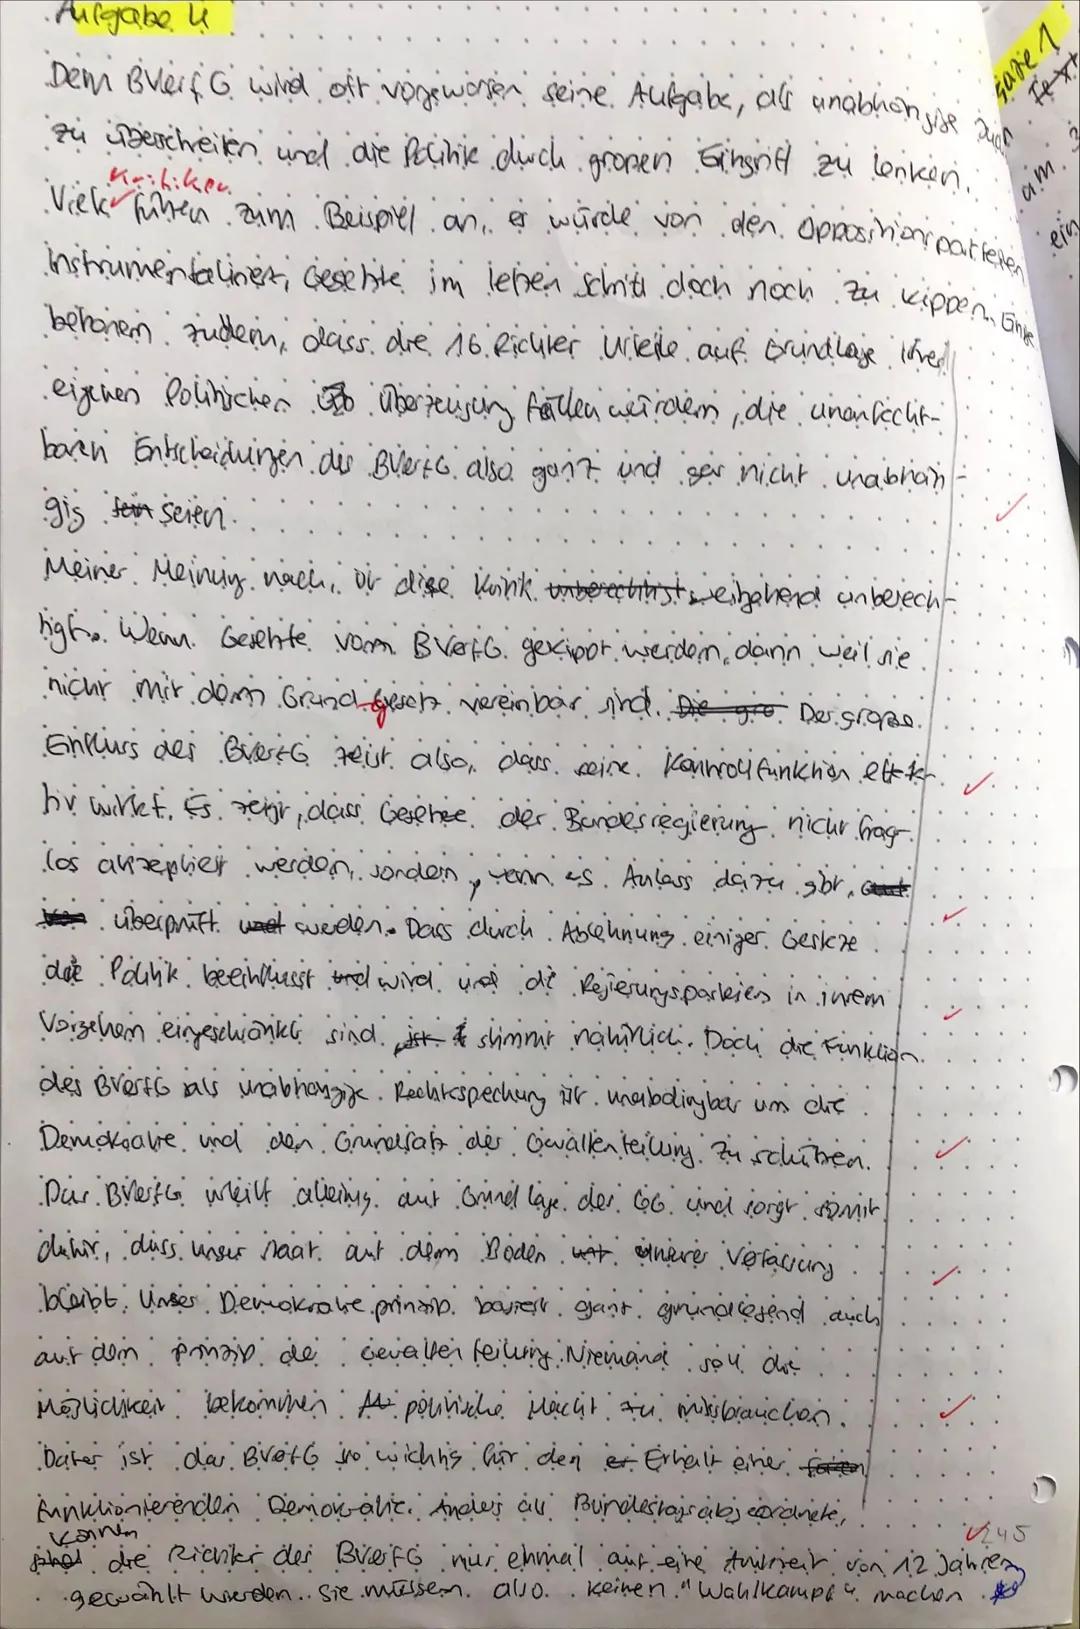 Aufgabe 4
Dem BVerfG wird oft vorgeworfen seine Aufgabe, als unabhängige
zu überschreiten und die Politik durch großen Eingriff zu lenken.
Kritiker
Viele führen zum Beispiel an, es würde von den Oppositionsparteien
instrumentalisiert, Gesetzte im letzen Schritt doch noch zu kippen. Einige
betonen zudem, dass die 16 Richter Urteile auf Grundlage ihrer
eigenen Politischen Überzeugung fällen würdem, die unanfecht-
baren Entscheidungen des BVerfG also ganz und gar nicht unabhän-
gig sein seien.
Meiner Meinung nach, ist diese Kritik unberechtigt weitgehend unberech-
tigt. Wenn Gesetzte vom BVerfG gekippt werden, dann weil sie
nicht mit dem Grundgesetz vereinbar sind. Die gro Der große
Einfluss des BVerfG zeigt also, dass seine Kontrollfunktion effek-
tiv wirkt. Es zeigt, dass Gesetze der Bundesregierung nicht frag-
los akzeptiert werden, sondern, wenn es Anlass dazu gibt,
überprüft und werden. Dass durch Ablehnung einiger Gesetze
die Politik beeinflusst und wird und die Regierungsparteien in ihrem
Vorgehen eingeschränkt sind ist stimmt natürlich. Doch die Funktion
des BVerfG als unabhängige Rechtssprechung ist unabdingbar um die
Demokratie und den Grundsatz der Gewaltenteilung zu schützen.
Das BVerfG urteilt alleinig auf Grundlage des GG und sorgt somit
dafür, dass unser Staat auf dem Boden unserer Verfassung
bleibt. Unser Demokratieprinzip basiert ganz grundlegend auch
auf dem Prinzip der Gewaltenteilung. Niemand soll die
Möglichkeit bekommen politische Macht zu missbrauchen.
Daher ist das BVerfG so wichtig für den er Erhalt einer
funktionierenden Demokratie. Anders als Bundestagsabgeordnete,
können
sind die Richter des BVerfG nur einmal auf eine Amtszeit von 12 Jahren
gewählt werden. Sie müssen also keinen "Wahlkampf" machen
245
1
Text
am
ein